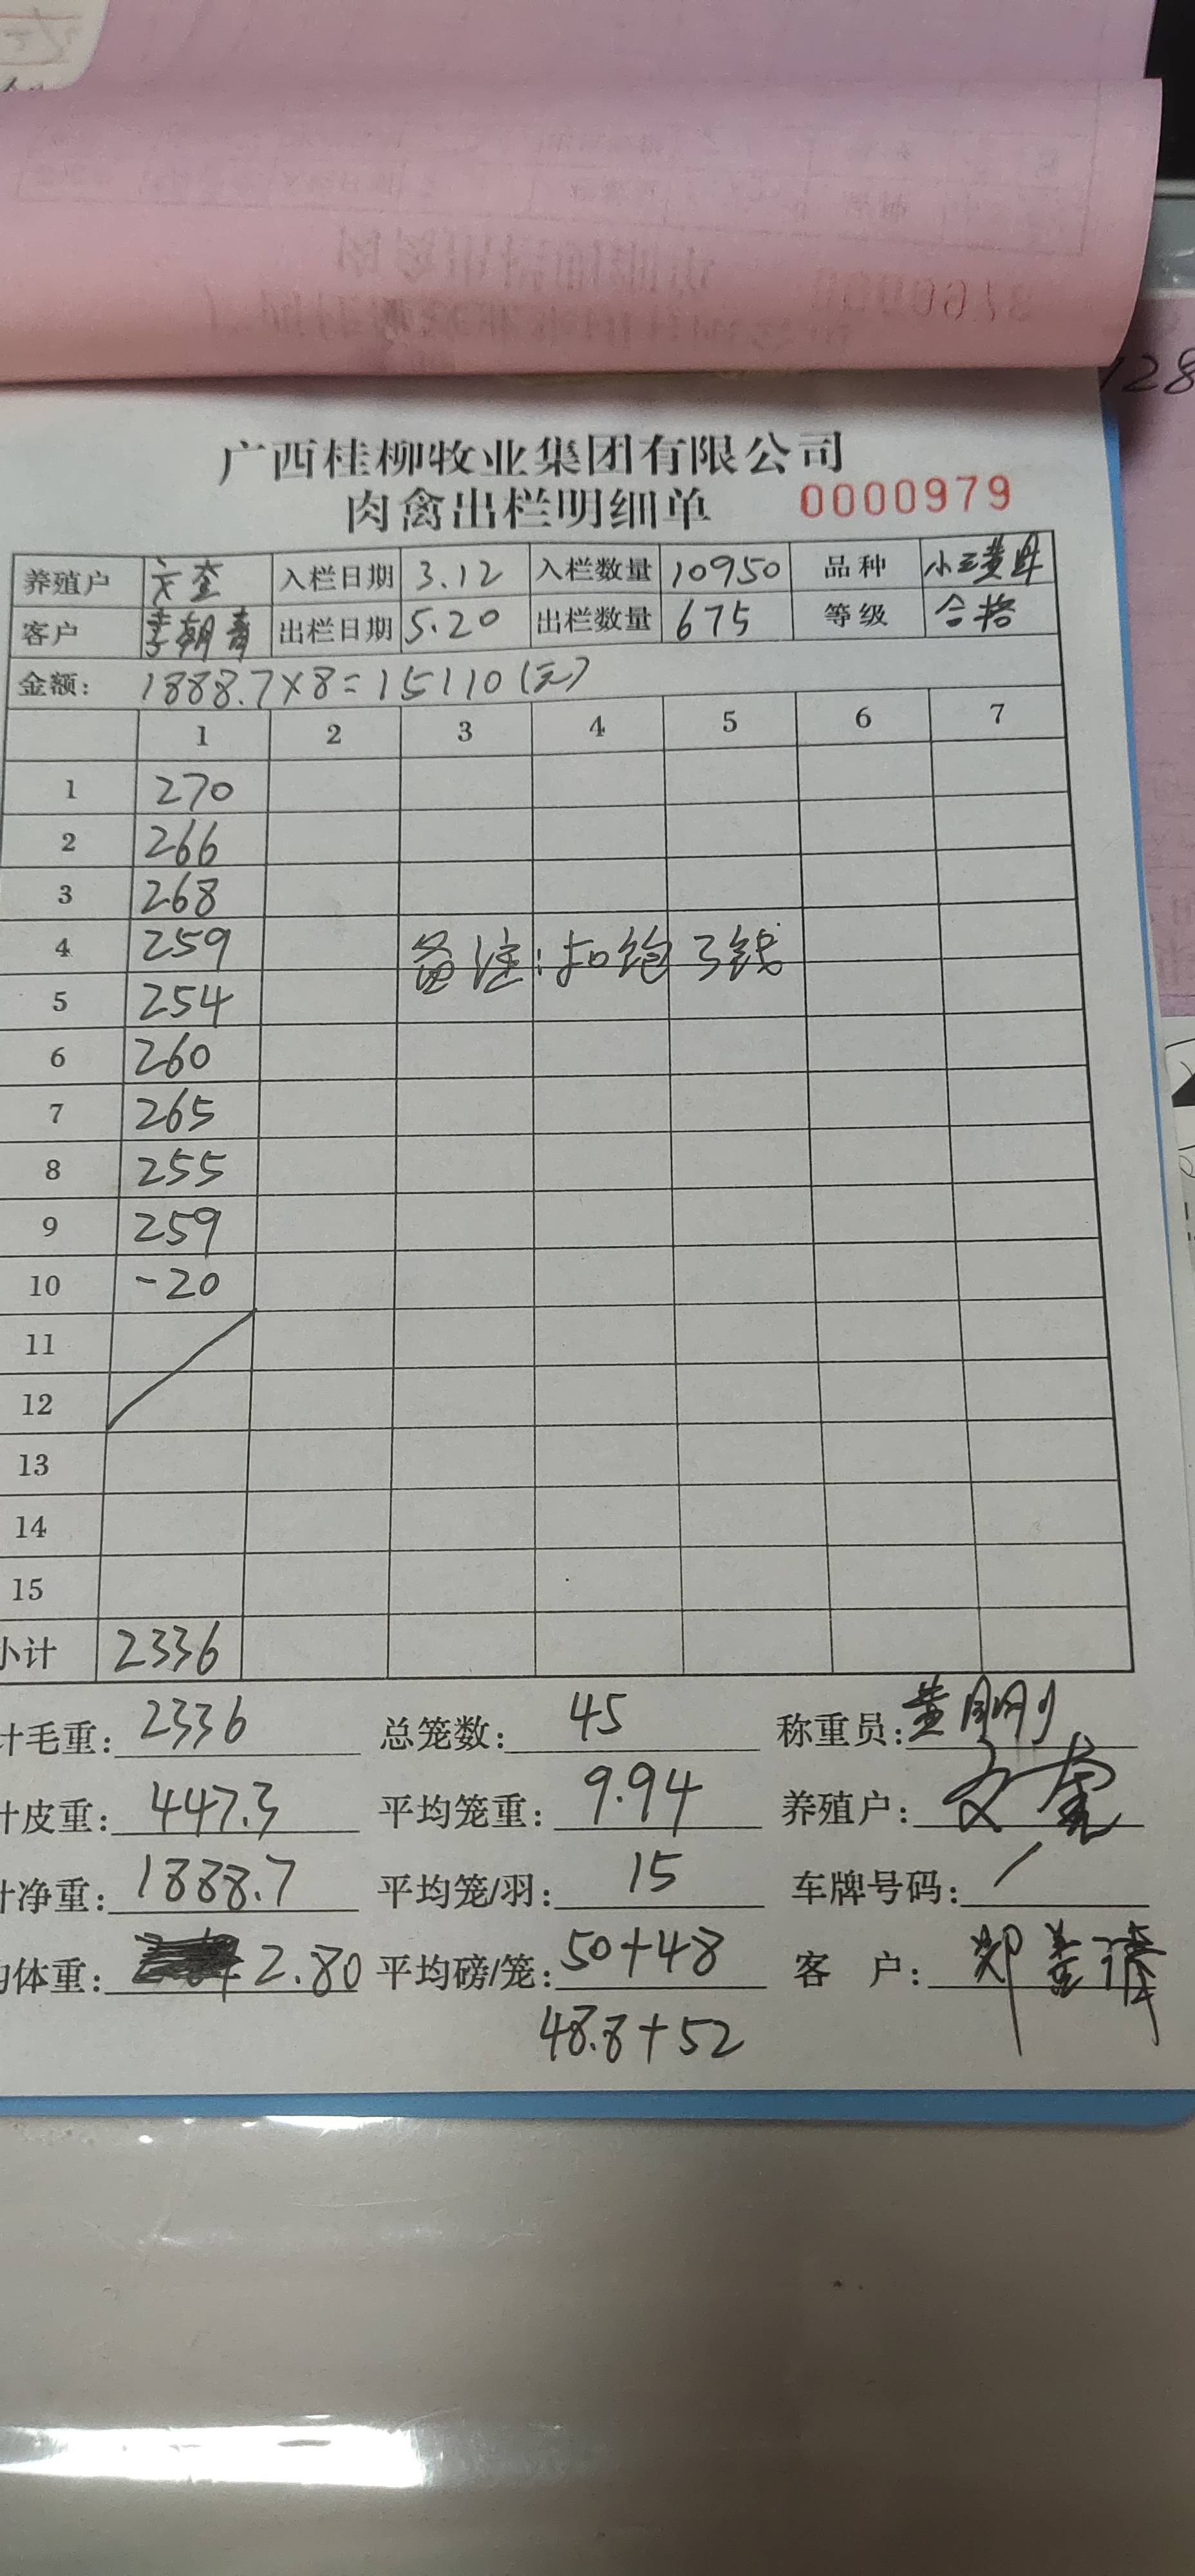 128
广西桂柳牧业集团有限公司
肉禽出栏明细单 0000979
养殖户 文奎 入栏日期 3.12 入栏数量 10950 品种 小三黄
客户 李朝青 出栏日期 5.20 出栏数量 675 等级 合格
金额: 1888.7×8=15110(元)
1 2 3 4 5 6 7
1 270
2 266
3 268
4 259 备注:扣饱了钱
5 254
6 260
7 265
8 255
9 259
10 -20
11
12
13
14
15
小计 2336
计毛重: 2336 总笼数: 45 称重员: 黄刚
计皮重: 447.3 平均笼重: 9.94 养殖户: 文奎
计净重: 1888.7 平均笼/羽: 15 车牌号码: /
均体重: 2.80 平均磅/笼: 50+48 客 户: 郑
48.8+52